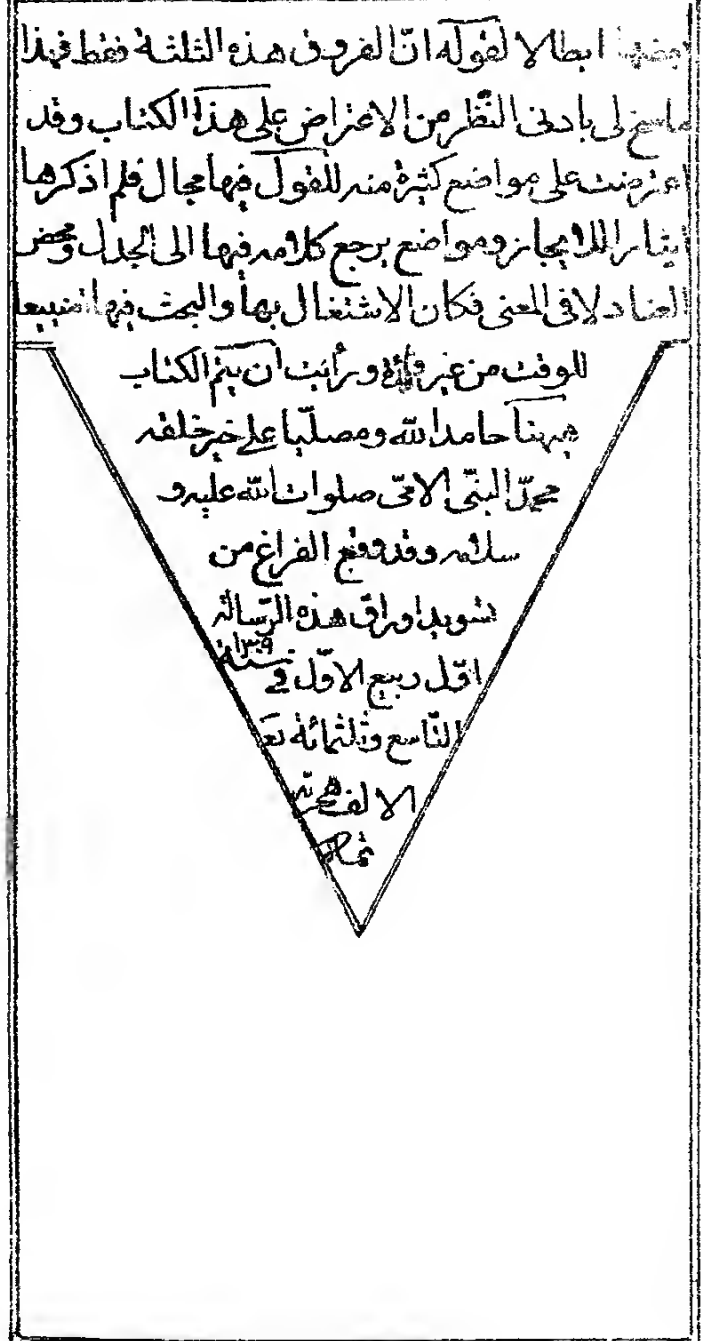 بعضها ابطالا لقوله انّ الفروق هذه الثلثة فقط فهذا
ما سنح لى بادنى النّظر من الاعتراض على هذا الكتاب وقد
اعترضت على مواضع كثيرة منه للقول فيها مجال فلم اذكرها
ايثارا للايجاز ومواضع يرجع كلامه فيها الى الجدل ومحض
العناد لا فى المعنى فكان الاشتغال بها والبحث فيها تضييعا
للوقت من غير فائدة ورأيت ان يتمّ الكتاب
هيهنا حامدا لله ومصلّيا على خير خلقه
محمّد النبىّ الامّى صلوات الله عليه و
سلامه وقد وقع الفراغ من
تسويد اوراق هذه الرّسالة
اوّل ربيع الاوّل فى سنة ١٣٠٩
التّاسع وثلثمائة بعد
الالف هجريّه